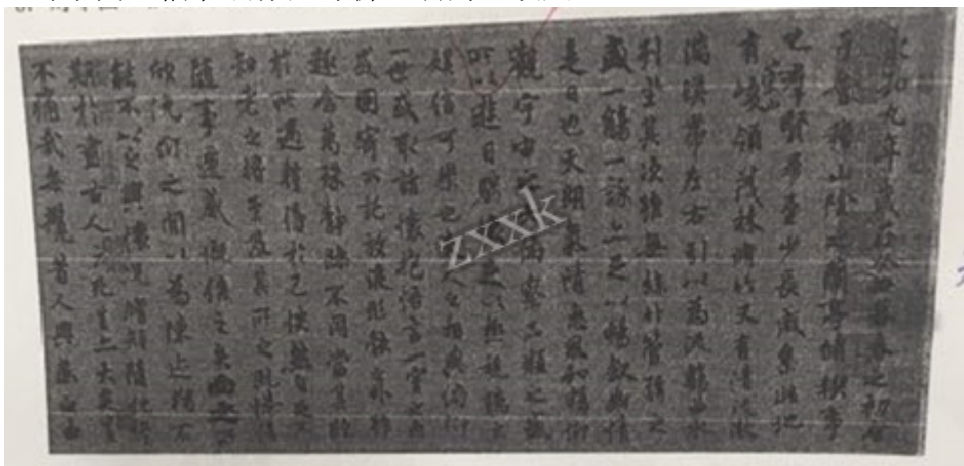 永和九年歲在癸丑暮春之初會
會稽山陰之蘭亭脩稧事
也群賢畢至少長咸集此地
有崇山峻領茂林脩竹又有清流激
湍暎帶左右引以為流觴曲水
列坐其次雖無絲竹管弦之
盛一觴一詠亦足以暢敘幽情
是日也天朗氣清惠風和暢仰
觀宇宙之大俯察品類之盛
所以遊目騁懷足以極視聽之
娛信可樂也夫人之相與俯仰
一世或取諸懷抱悟言一室之內
或因寄所託放浪形骸之外雖
趣舍萬殊靜躁不同當其欣
於所遇暫得於己怏然自足不
知老之將至及其所之既惓情
隨事遷感慨係之矣向之
欣俛仰之閒以為陳迹猶不
能不以之興懷況脩短隨化終
期於盡古人云死生亦大矣豈
不痛哉每攬昔人興感之由
zxxk